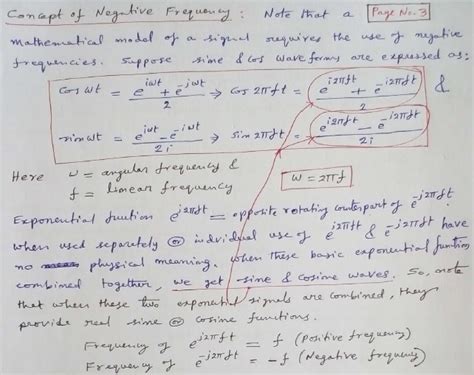 Concept of Negative Frequency: Note that a Page No. 3
mathematical model of a signal requires the use of negative
frequencies. Suppose sine & cos wave forms are expressed as:
cos ωt = (e^{iωt} + e^{-iωt})/2 → cos 2πft = (e^{i2πft} + e^{-i2πft})/2 &
sin ωt = (e^{iωt} - e^{-iωt})/2i → sin 2πft = (e^{i2πft} - e^{-i2πft})/2i
Here ω = angular frequency &
f = linear frequency
ω = 2πf
Exponential function e^{j2πft} = opposite rotating counterpart of e^{-j2πft}.
when used separately or individual use of e^{j2πft} & e^{-j2πft} have
no physical meaning. when these basic exponential functions
combined together, we get sine & cosine waves. So, note
that when these two exponential signals are combined, they
provide real sine or cosine functions.
Frequency of e^{j2πft} = f (Positive frequency)
Frequency of e^{-j2πft} = -f (Negative frequency)